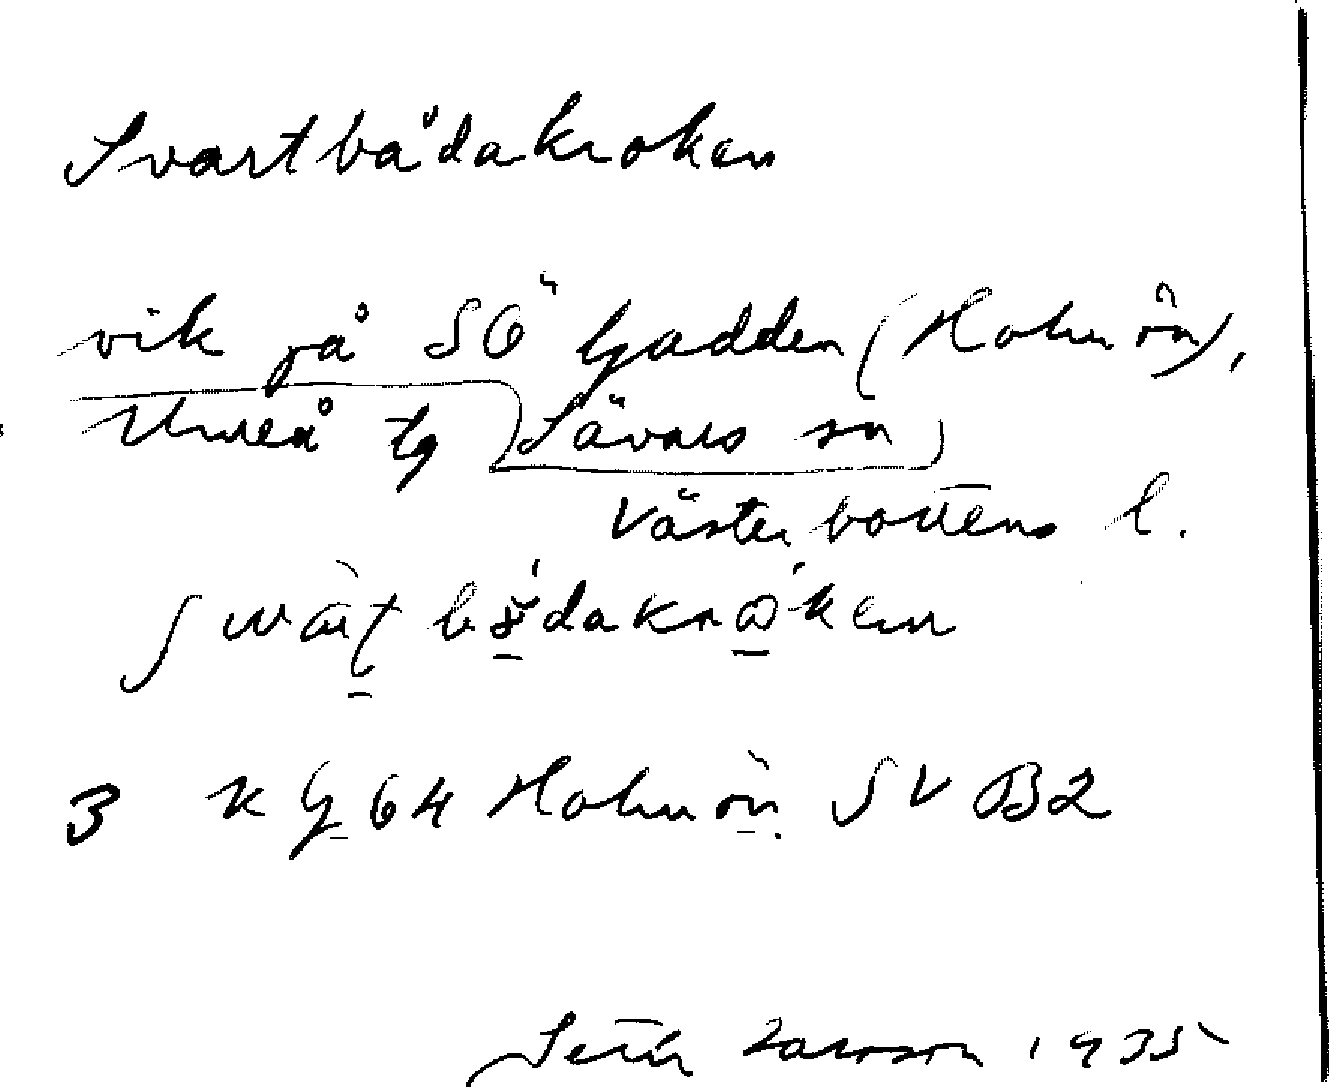 Svartbådakroken
vik på SÖ Gadden (Holmön),
Umeå tg Sävars sn
Västerbottens l.
3 K G 64 Holmön SV B2
Seth Larsson 1935